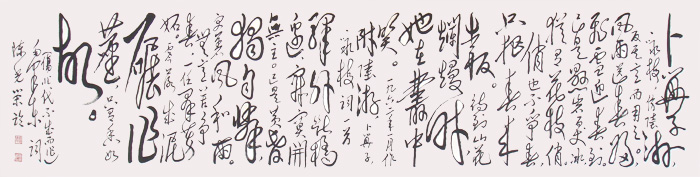 卜算子
咏梅 读陆
反其意而用之。
风雨送春归，
飞雪迎春到。
已是悬崖百丈冰，
犹有花枝
俏 俏也不争春，
只把春来
报。待到山花
爛熳時
她在叢中
笑。一九六一年十二月作
附陸游 卜算子
咏梅 词一首
驛外斷橋
邊，寂寞開
無主。已是黄昏
獨自愁，
更著風和雨。
無意苦争
春，一任群芳
妒。零落成泥
碾作
塵，只有香如
故。